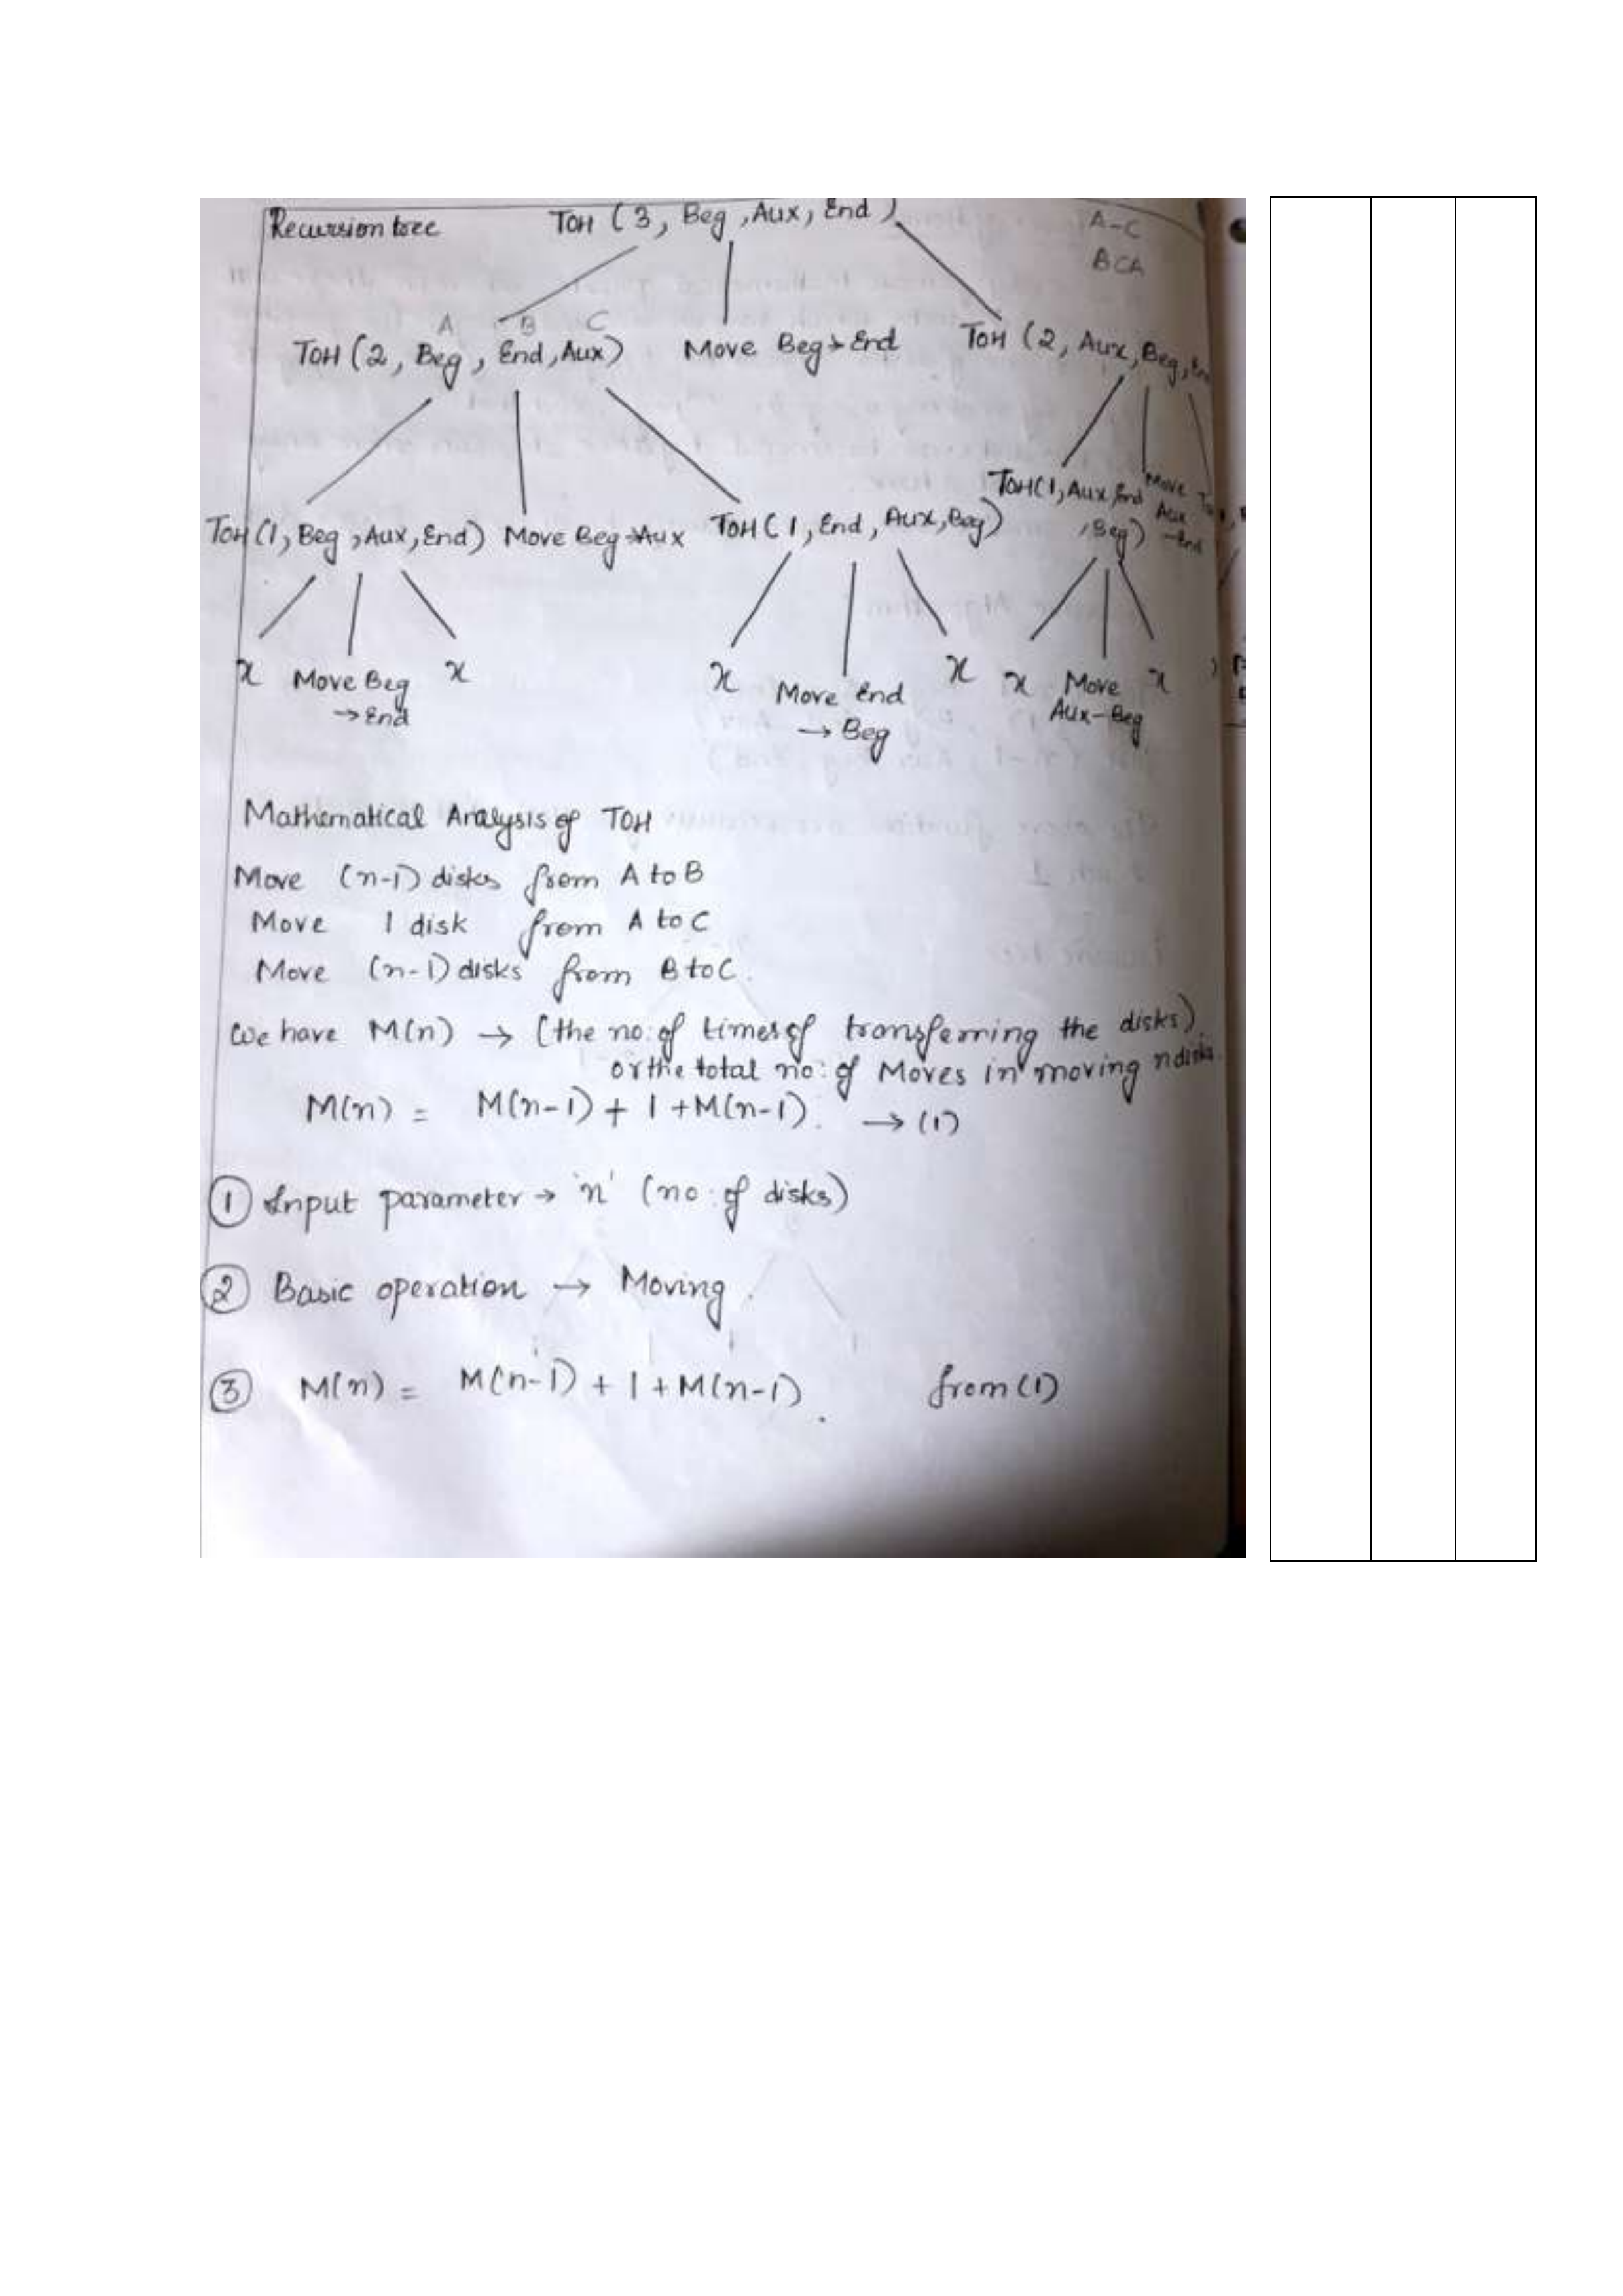 Recursion tree TOH (3, Beg, Aux, End) A-C
BCA
A B C
TOH (2, Beg, End, Aux) Move Beg→End TOH (2, Aux, Beg, En
TOH (1, Beg, Aux, End) Move Beg→Aux TOH (1, End, Aux, Beg) TOH(1, Aux, End, Beg) Move Aux - End
x Move Beg → End x x Move End → Beg x x Move Aux-Beg x
Mathematical Analysis of TOH
Move (n-1) disks from A to B
Move 1 disk from A to C
Move (n-1) disks from B to C.
We have M(n) → (the no: of times of transferring the disks)
or the total no: of Moves in moving n disks.
M(n) = M(n-1) + 1 + M(n-1). → (1)
① Input parameter → 'n' (no: of disks)
② Basic operation → Moving.
③ M(n) = M(n-1) + 1 + M(n-1). from (1)